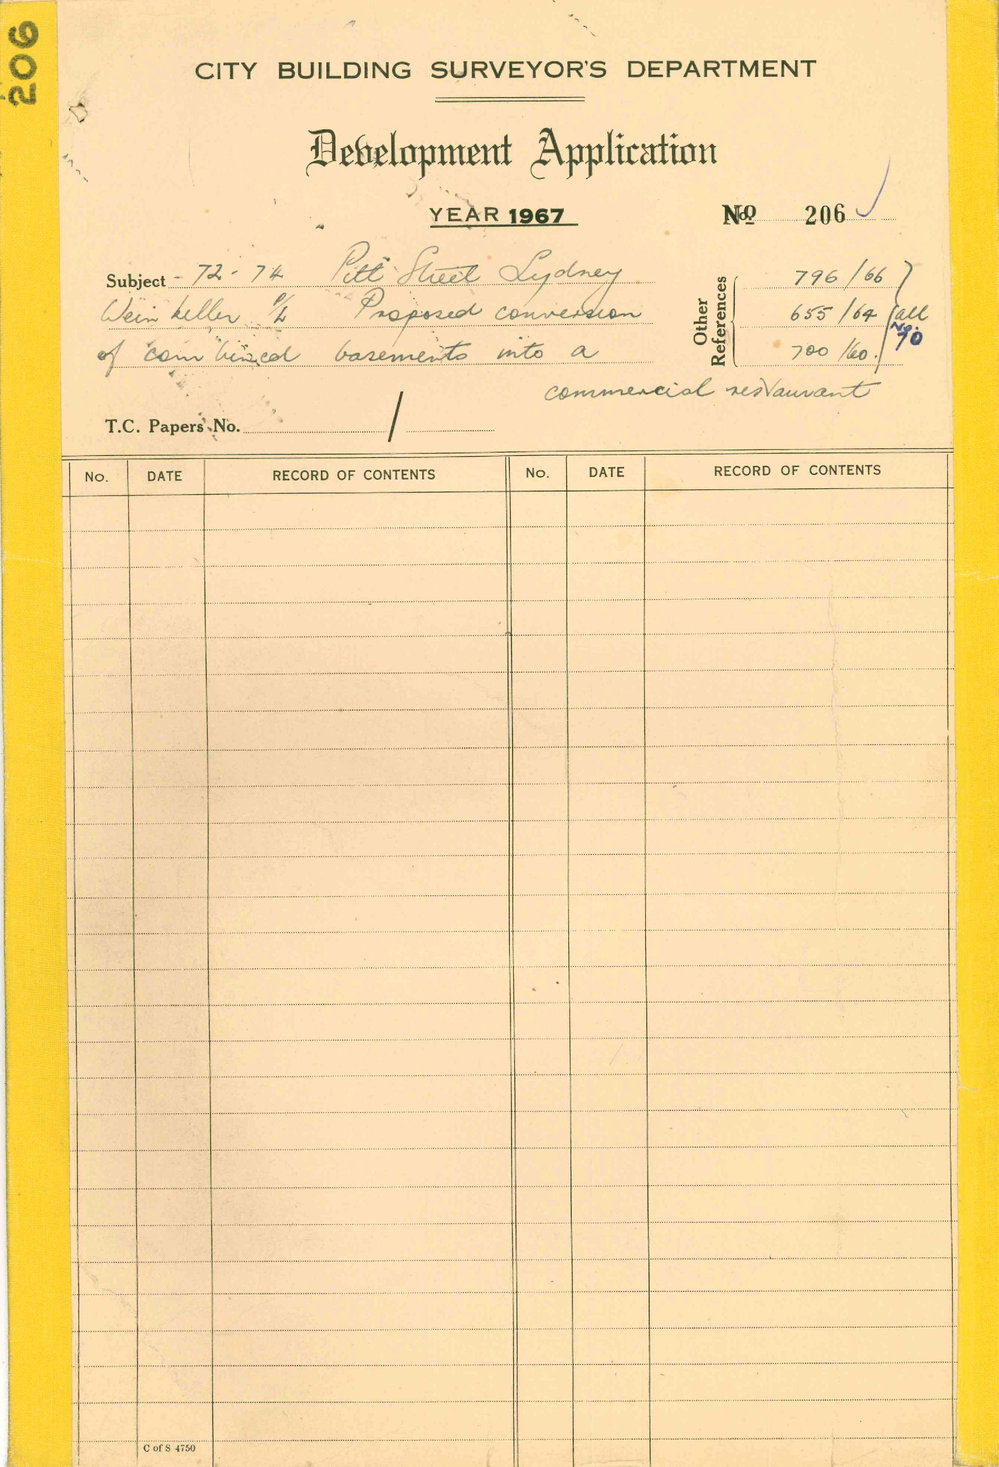 206
CITY BUILDING SURVEYOR'S DEPARTMENT
Development Application
YEAR 1967
No 206
Subject - 72 - 74 Pitt Street Sydney
Weinkeller P/L Proposed conversion
of combined basements into a
commercial restaurant
Other References
796/66
655/64 (all
700/60.
No. 70
T.C. Papers No. /
No. DATE RECORD OF CONTENTS No. DATE RECORD OF CONTENTS
C of S 4750